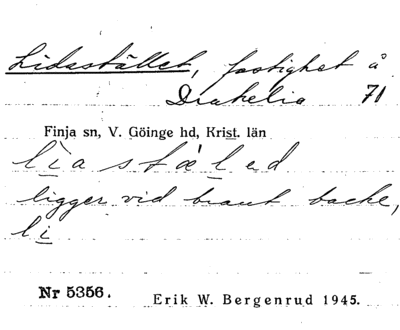 Lidastället, fastighet å
Drakelia 71
Finja sn, V. Göinge hd, Krist. län
lìastæ̀led
ligger vid brant backe,
li
Nr 5356. Erik W. Bergenrud 1945.